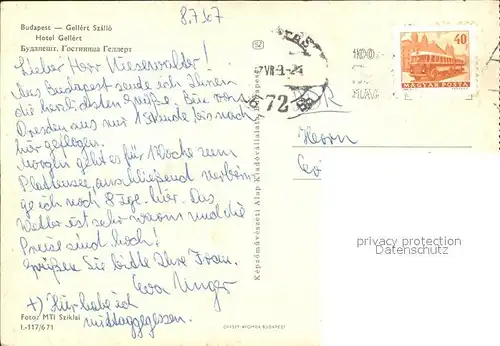 8.7.67
Budapest — Gellért Szálló
Hotel Gellért
Будапешт. Гостиница Геллерт
Lieber Herr Kieserwalder!
Aus Budapest sende ich Ihnen
die herzlichsten Grüße. Bin von
Dresden aus nur 1 Stunde bis nach
hier geflogen.
Morgen geht es für 1 Woche zum
Plattensee, anschließend verbrin-
ge ich noch 8 Tge. hier. Das
Wetter ist sehr warm und die
Preise sind hoch!
Grüßen Sie bitte Ihre Frau.
Eva Unger
+) Hier habe ich
mittaggegessen.
Foto: MTI Sziklai
I.-117/671
Képzőművészeti Alap Kiadóvállalata, Budapest
OFFSET-NYOMDA BUDAPEST
72
40
MAGYAR POSTA
Herrn
privacy protection
Datenschutz